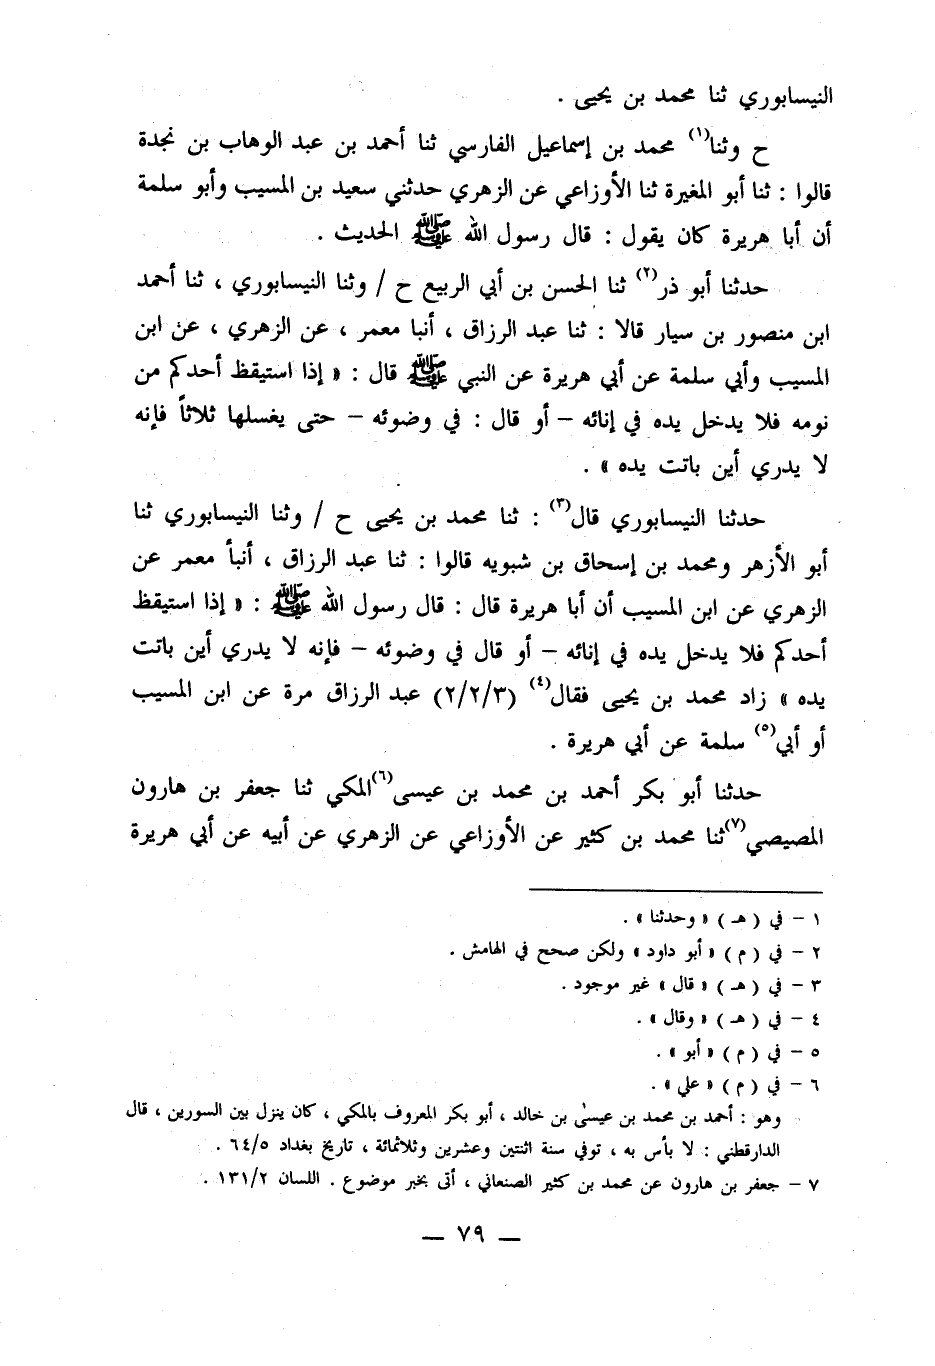 النيسابوري ثنا محمد بن يحيى .
ح وثنا(١) محمد بن إسماعيل الفارسي ثنا أحمد بن عبد الوهاب بن نجدة
قالوا : ثنا أبو المغيرة ثنا الأوزاعي عن الزهري حدثني سعيد بن المسيب وأبو سلمة
أن أبا هريرة كان يقول : قال رسول الله ﷺ الحديث .
حدثنا أبو ذر(٢) ثنا الحسن بن أبي الربيع ح / وثنا النيسابوري ، ثنا أحمد
ابن منصور بن سيار قالا : ثنا عبد الرزاق ، أنبا معمر ، عن الزهري ، عن ابن
المسيب وأبي سلمة عن أبي هريرة عن النبي ﷺ قال : « إذا استيقظ أحدكم من
نومه فلا يدخل يده في إنائه – أو قال : في وضوئه – حتى يغسلها ثلاثاً فإنه
لا يدري أين باتت يده » .
حدثنا النيسابوري قال(٣) : ثنا محمد بن يحيى ح / وثنا النيسابوري ثنا
أبو الأزهر ومحمد بن إسحاق بن شبويه قالوا : ثنا عبد الرزاق ، أنبأ معمر عن
الزهري عن ابن المسيب أن أبا هريرة قال : قال رسول الله ﷺ : « إذا استيقظ
أحدكم فلا يدخل يده في إنائه – أو قال في وضوئه – فإنه لا يدري أين باتت
يده » زاد محمد بن يحيى فقال(٤) (٢/٢/٣) عبد الرزاق مرة عن ابن المسيب
أو أبي(٥) سلمة عن أبي هريرة .
حدثنا أبو بكر أحمد بن محمد بن عيسى(٦) المكي ثنا جعفر بن هارون
المصيصي(٧) ثنا محمد بن كثير عن الأوزاعي عن الزهري عن أبيه عن أبي هريرة
١ – في ( هـ ) « وحدثنا » .
٢ – في ( م ) « أبو داود » ولكن صحح في الهامش .
٣ – في ( هـ ) « قال » غير موجود .
٤ – في ( هـ ) « وقال » .
٥ – في ( م ) « أبو » .
٦ – في ( م ) « علي » .
وهو : أحمد بن محمد بن عيسىٰ بن خالد ، أبو بكر المعروف بالمكي ، كان ينزل بين السورين ، قال
الدارقطني : لا بأس به ، توفي سنة اثنتين وعشرين وثلاثمائة ، تاريخ بغداد ٦٤/٥ .
٧ – جعفر بن هارون عن محمد بن كثير الصنعاني ، أتى بخبر موضوع . اللسان ١٣١/٢ .
— ٧٩ —